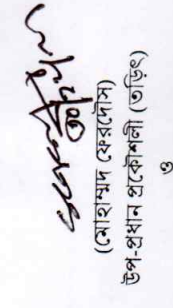 (মোহাম্মদ ফেরদৌস)
উপ-প্রধান প্রকৌশলী (তড়িৎ)
ও